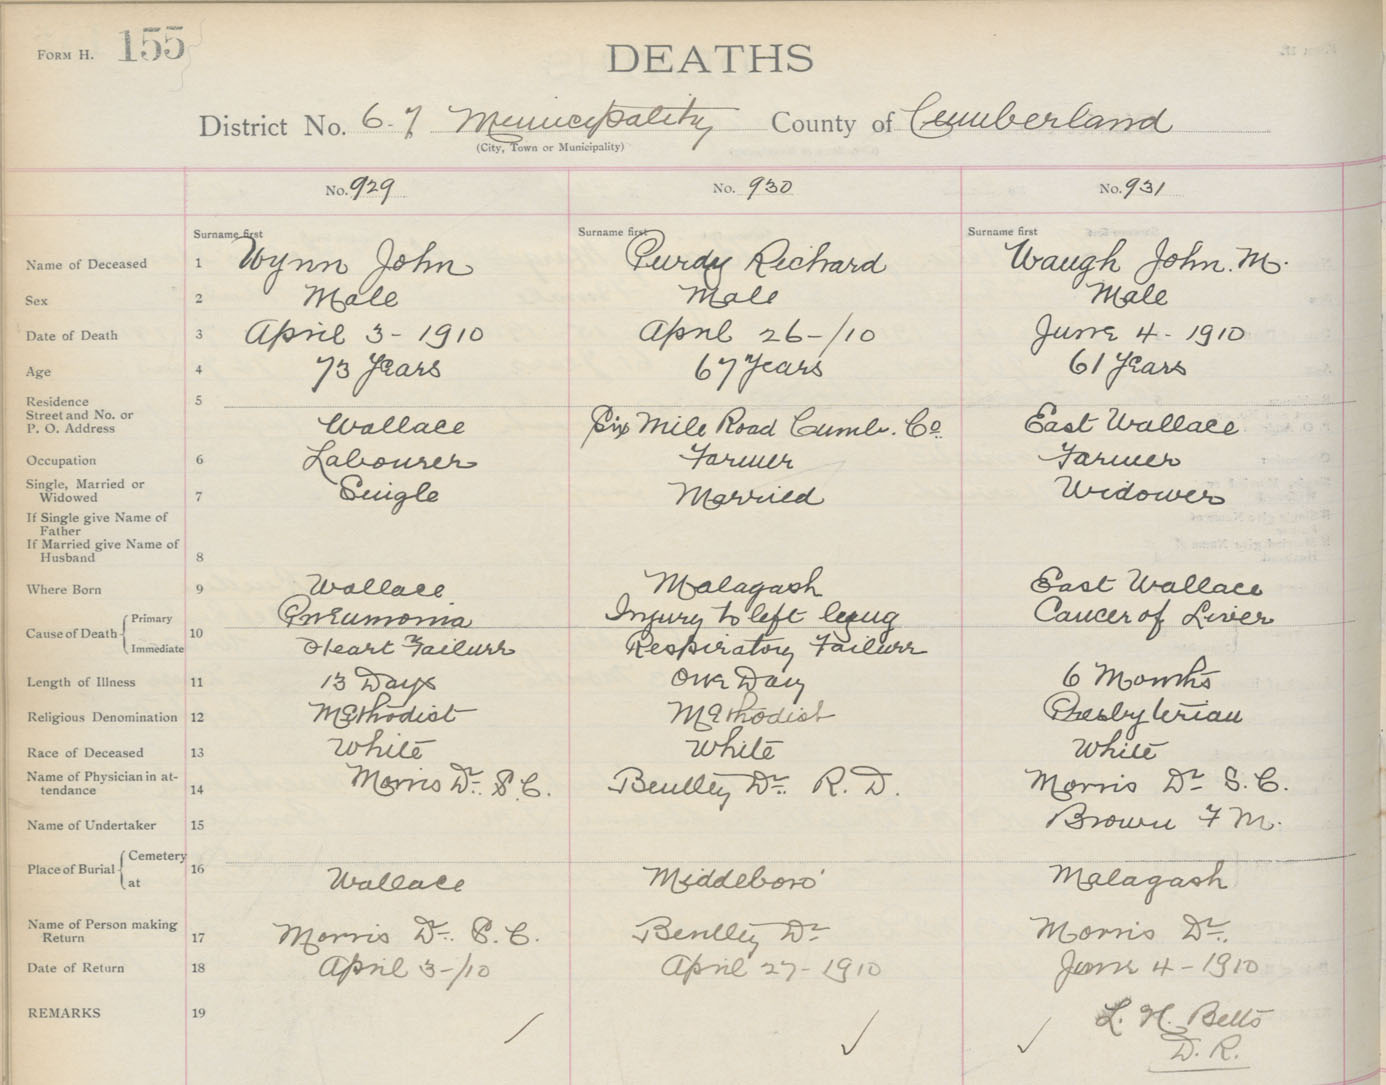 FORM H. 155
DEATHS
District No. 6-7 Municipality County of Cumberland
(City, Town or Municipality)
No. 929 No. 930 No. 931
Surname first Surname first Surname first
Name of Deceased 1 Wynn John Purdy Richard Waugh John. M.
Sex 2 Male Male Male
Date of Death 3 April 3 - 1910 April 26 -/10 June 4 - 1910
Age 4 73 Years 67 Years 61 Years
Residence 5
Street and No. or
P. O. Address Wallace Six Mile Road Cumb. Co. East Wallace
Occupation 6 Labourer Farmer Farmer
Single, Married or
Widowed 7 Single Married Widower
If Single give Name of
Father
If Married give Name of
Husband 8
Where Born 9 Wallace Malagash East Wallace
Cause of Death 10 Primary Pneumonia Injury to left lung Cancer of Liver
Immediate Heart Failure Respiratory Failure
Length of Illness 11 13 Days One Day 6 Months
Religious Denomination 12 Methodist Methodist Presbyterian
Race of Deceased 13 White White White
Name of Physician in at-
tendance 14 Morris Dr. S. C. Bentley Dr. R. D. Morris Dr S. C.
Name of Undertaker 15 Brown F M.
Place of Burial 16 Cemetery
at Wallace Middleboro' Malagash
Name of Person making
Return 17 Morris Dr. S. C. Bentley Dr Morris Dr.
Date of Return 18 April 3-/10 April 27 - 1910 June 4 - 1910
REMARKS 19 L. H. Betts
D. R.